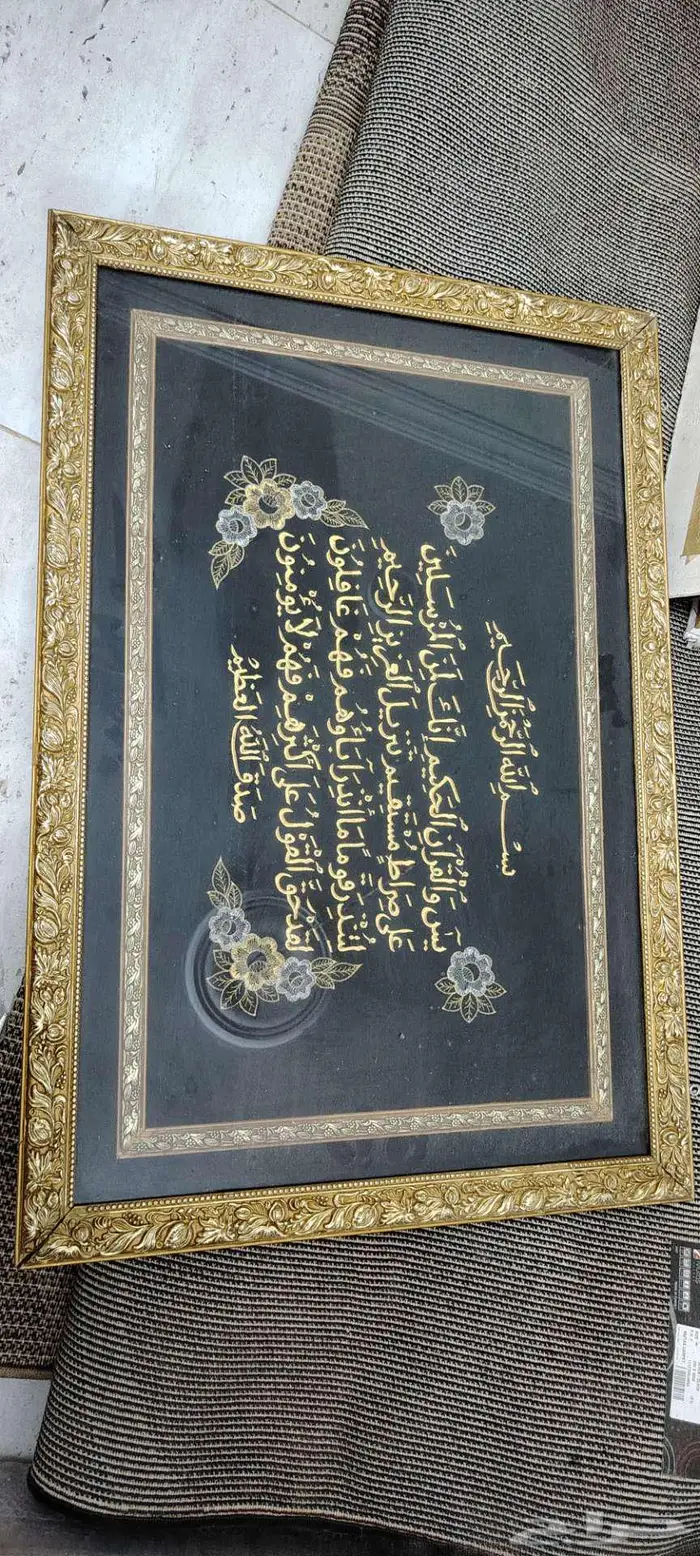 بِسْمِ اللهِ الرَّحْمٰنِ الرَّحِيمِ
يسَ وَالْقُرْآنِ الْحَكِيمِ اِنَّكَ لَمِنَ الْمُرْسَلِينَ
عَلَى صِرَاطٍ مُسْتَقِيمٍ تَنْزِيلَ الْعَزِيزِ الرَّحِيمِ
لِتُنْذِرَ قَوْمًا مَا أُنْذِرَ آبَاؤُهُمْ فَهُمْ غَافِلُونَ
لَقَدْ حَقَّ الْقَوْلُ عَلَى أَكْثَرِهِمْ فَهُمْ لَا يُؤْمِنُونَ
صَدَقَ اللهُ الْعَظِيمُ
حراج